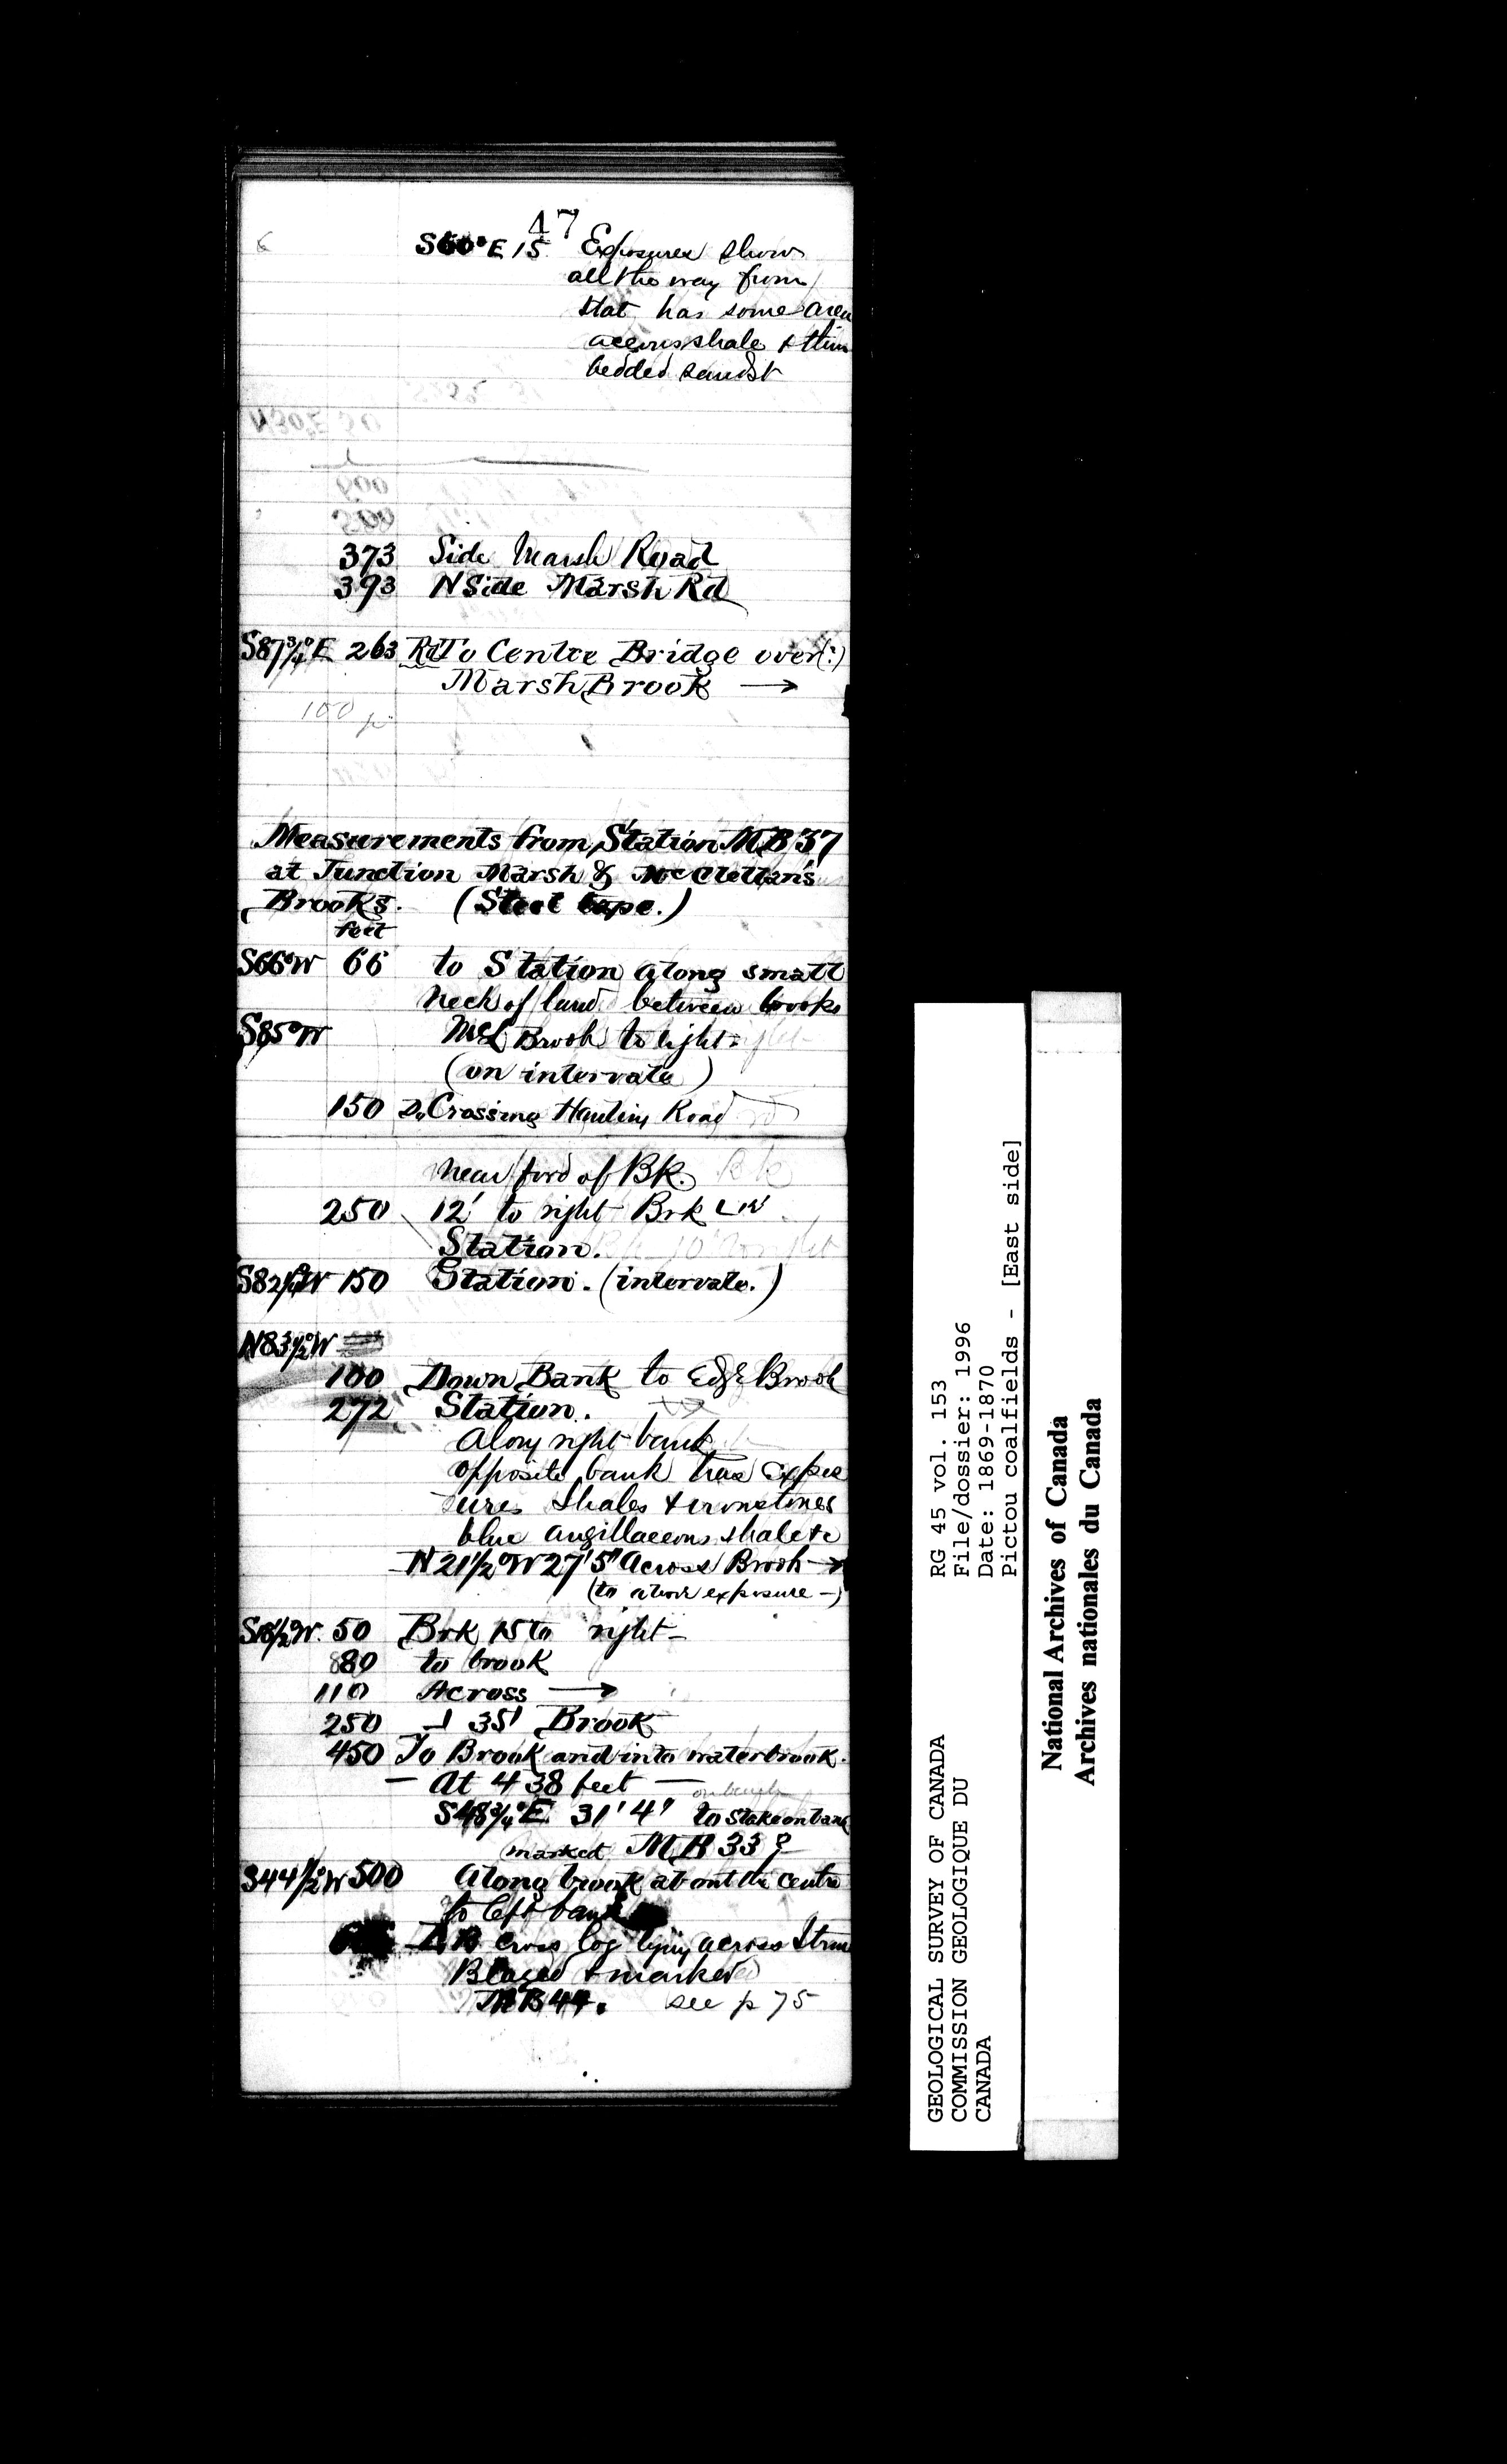 47
S60°E 15 Exposures show
all the way from
stat has some aren
aceous shale & thin
bedded sandst
373 Side Marsh Road
393 N Side Marsh Rd
S87¾°E 263 Rd To Centre Bridge over (:)
Marsh Brook →
100 p
Measurements from Station MB 37
at Junction Marsh & McClellan's
Brooks. (Steel tape.)
feet
S66°W 66 to Station along small
neck of land between brooks
S85°W McL Brook to right
(on intervale)
150 Crossing Hauling Road
near ford of BK.
250 12' to right Brk
Station.
W 150 Station. (intervale.)
N83½°W
100 Down Bank to Edge Brook
272 Station.
Along right bank
opposite bank has expos
ures shales & ironstones
blue argillaceous shale &c
N21½°W 27' 5" Across Brook →
(to above exposure —)
50 Brk 15 to right —
80 to brook
110 Across →
250 35' Brook
450 To Brook and into water brook.
— At 438 feet —
on bank
S48¾°E 31' 4" to Stake on bank
marked MB 33 ?
S44½°W 500 Along brook about the centre
to left bank
cross log lying across Strm
Blazed & marked
MB 44. see p 75
GEOLOGICAL SURVEY OF CANADA
COMMISSION GEOLOGIQUE DU
CANADA
RG 45 vol. 153
File/dossier: 1996
Date: 1869-1870
Pictou coalfields - [East side]
National Archives of Canada
Archives nationales du Canada